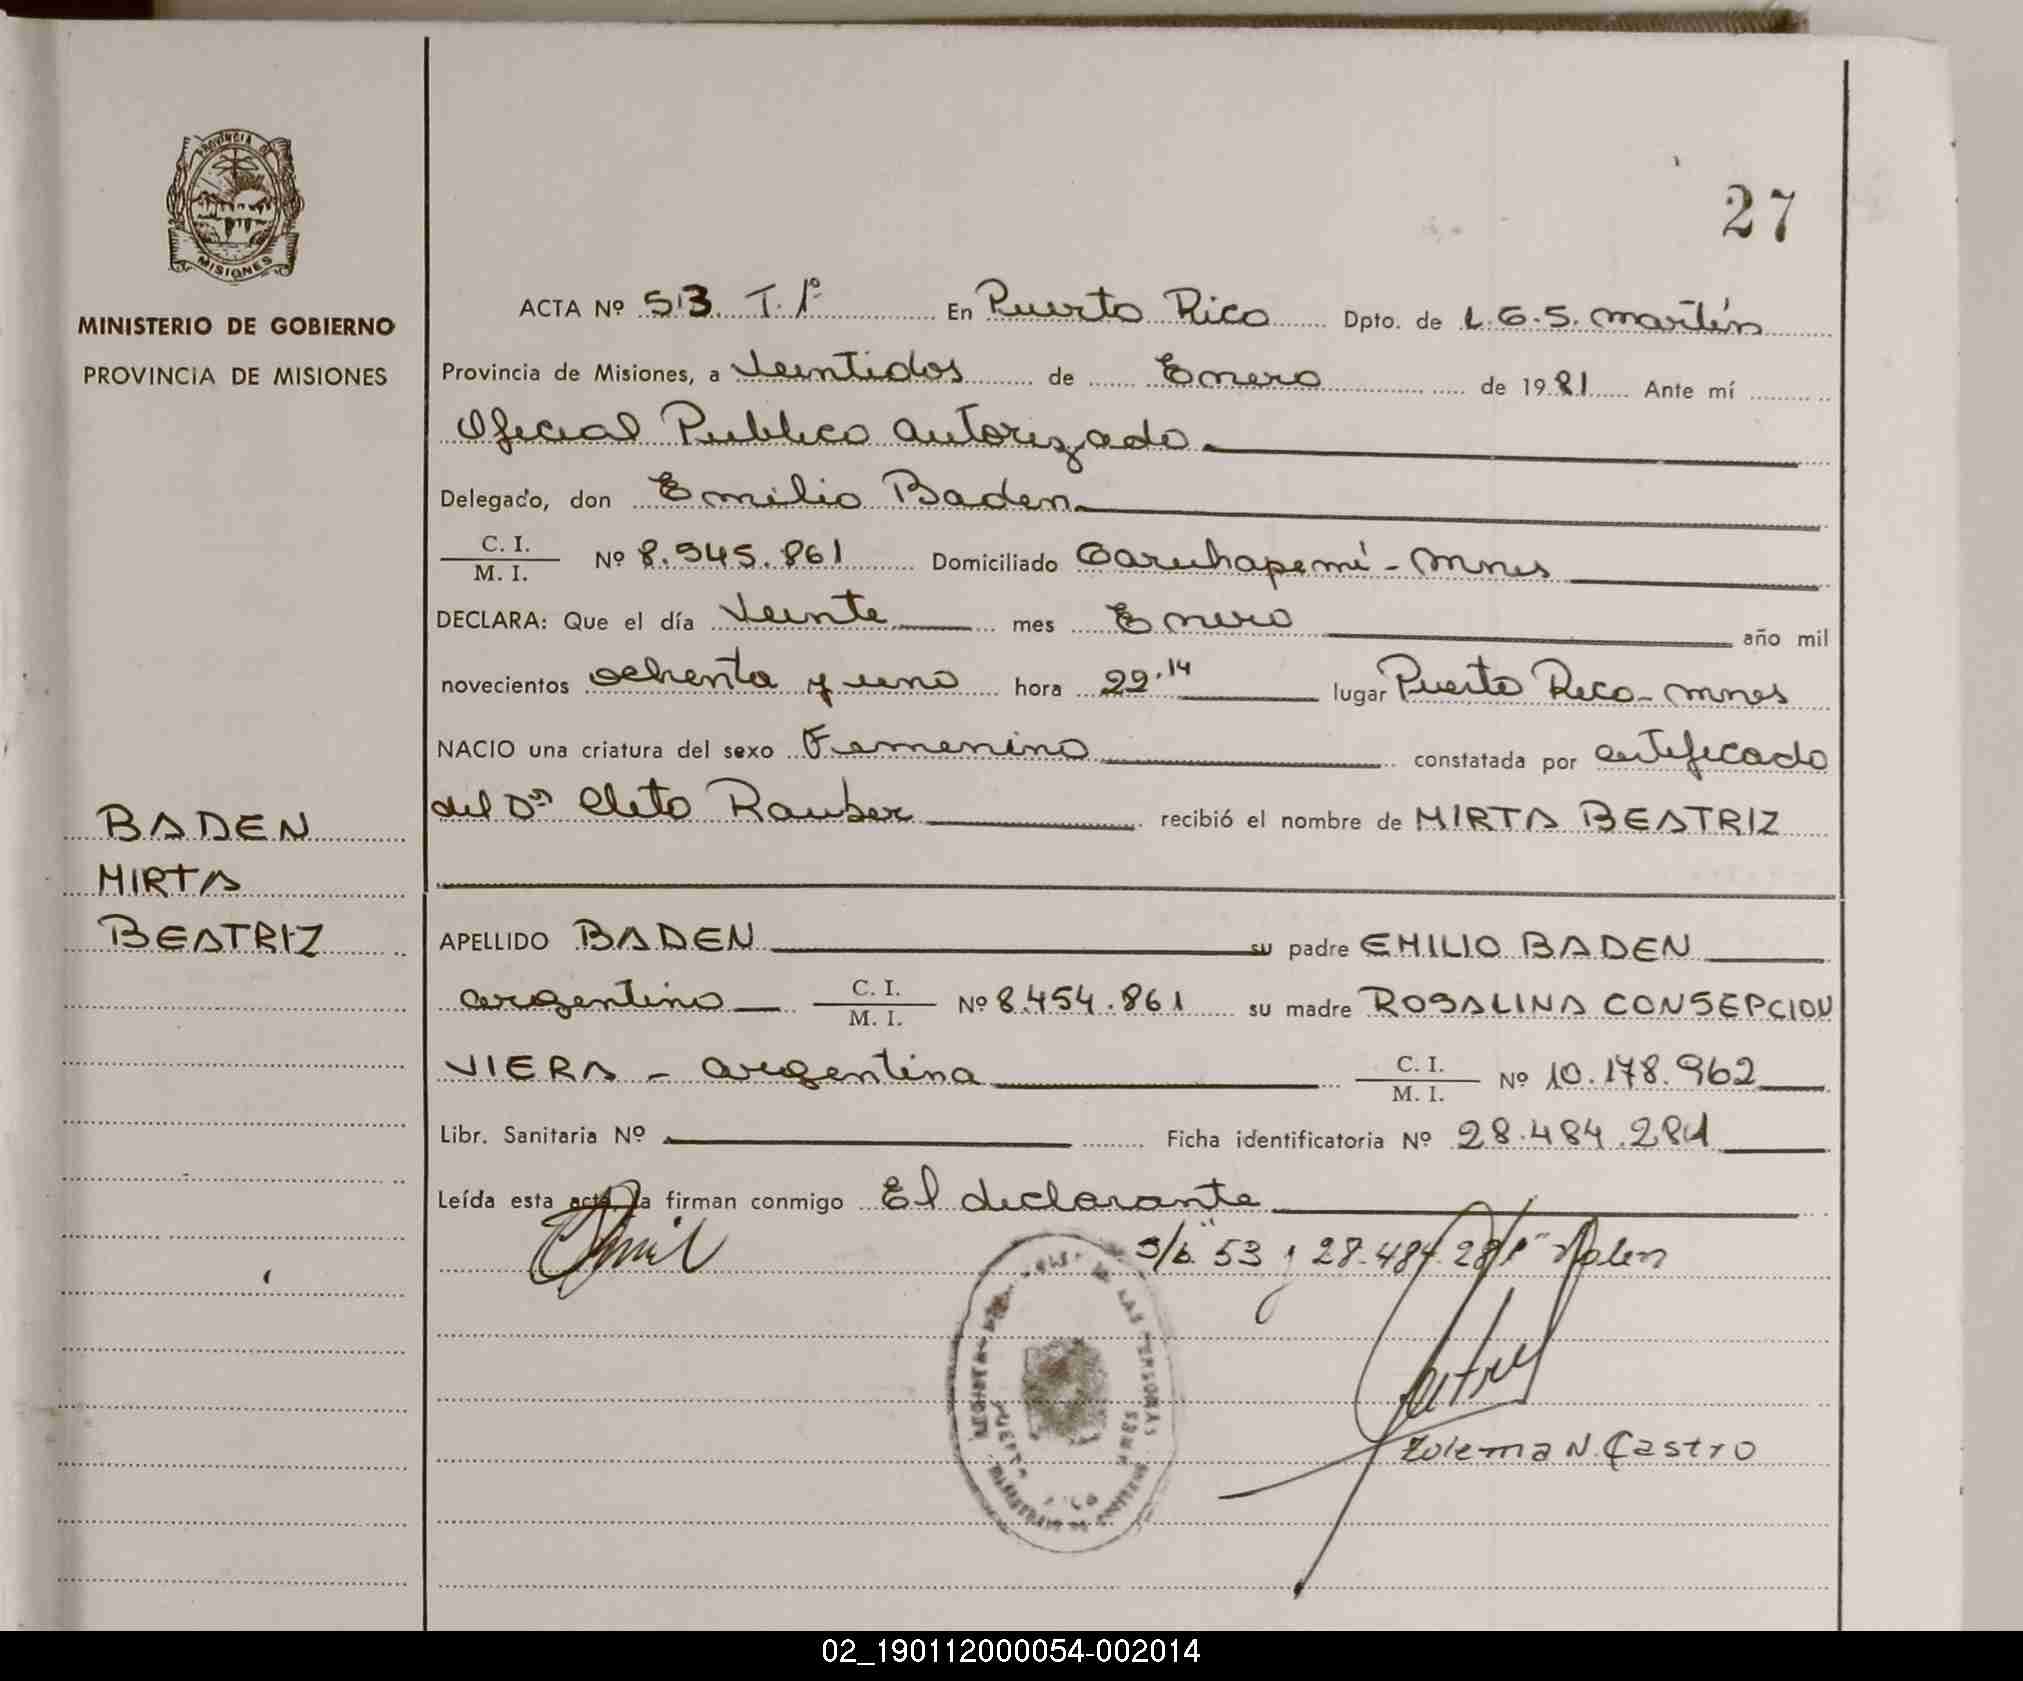 PROVINCIA DE
MISIONES
MINISTERIO DE GOBIERNO
PROVINCIA DE MISIONES
27
ACTA Nº 53 T. 1º En Puerto Rico Dpto. de L.G.S. Martín
Provincia de Misiones, a Veintidos de Enero de 1981 Ante mí
Oficial Publico autorizado
Delegado, don Emilio Baden
C. I.
M. I.
Nº 8.545.861 Domiciliado Caruhapemí - Mnes
DECLARA: Que el día Veinte mes Enero año mil
novecientos ochenta y uno hora 22.14 lugar Puerto Rico - Mnes
NACIO una criatura del sexo Femenino constatada por certificado
del Dr Cleto Rauber recibió el nombre de MIRTA BEATRIZ
BADEN
MIRTA
BEATRIZ
APELLIDO BADEN su padre EMILIO BADEN
argentino C. I.
M. I.
Nº 8.454.861 su madre ROSALINA CONSEPCION
VIERA - argentina C. I.
M. I.
Nº 10.178.962
Libr. Sanitaria Nº Ficha identificatoria Nº 28.484.281
Leída esta acta, la firman conmigo El declarante
s/b "53 y 28.484.281" Valen
DE LAS PERSONAS
Zulema N. Castro
02_190112000054-002014